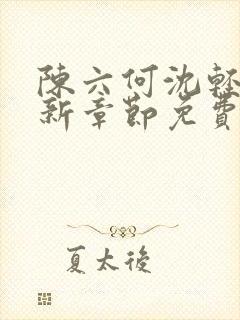 陳六何沈輕
新章節免費
夏太後